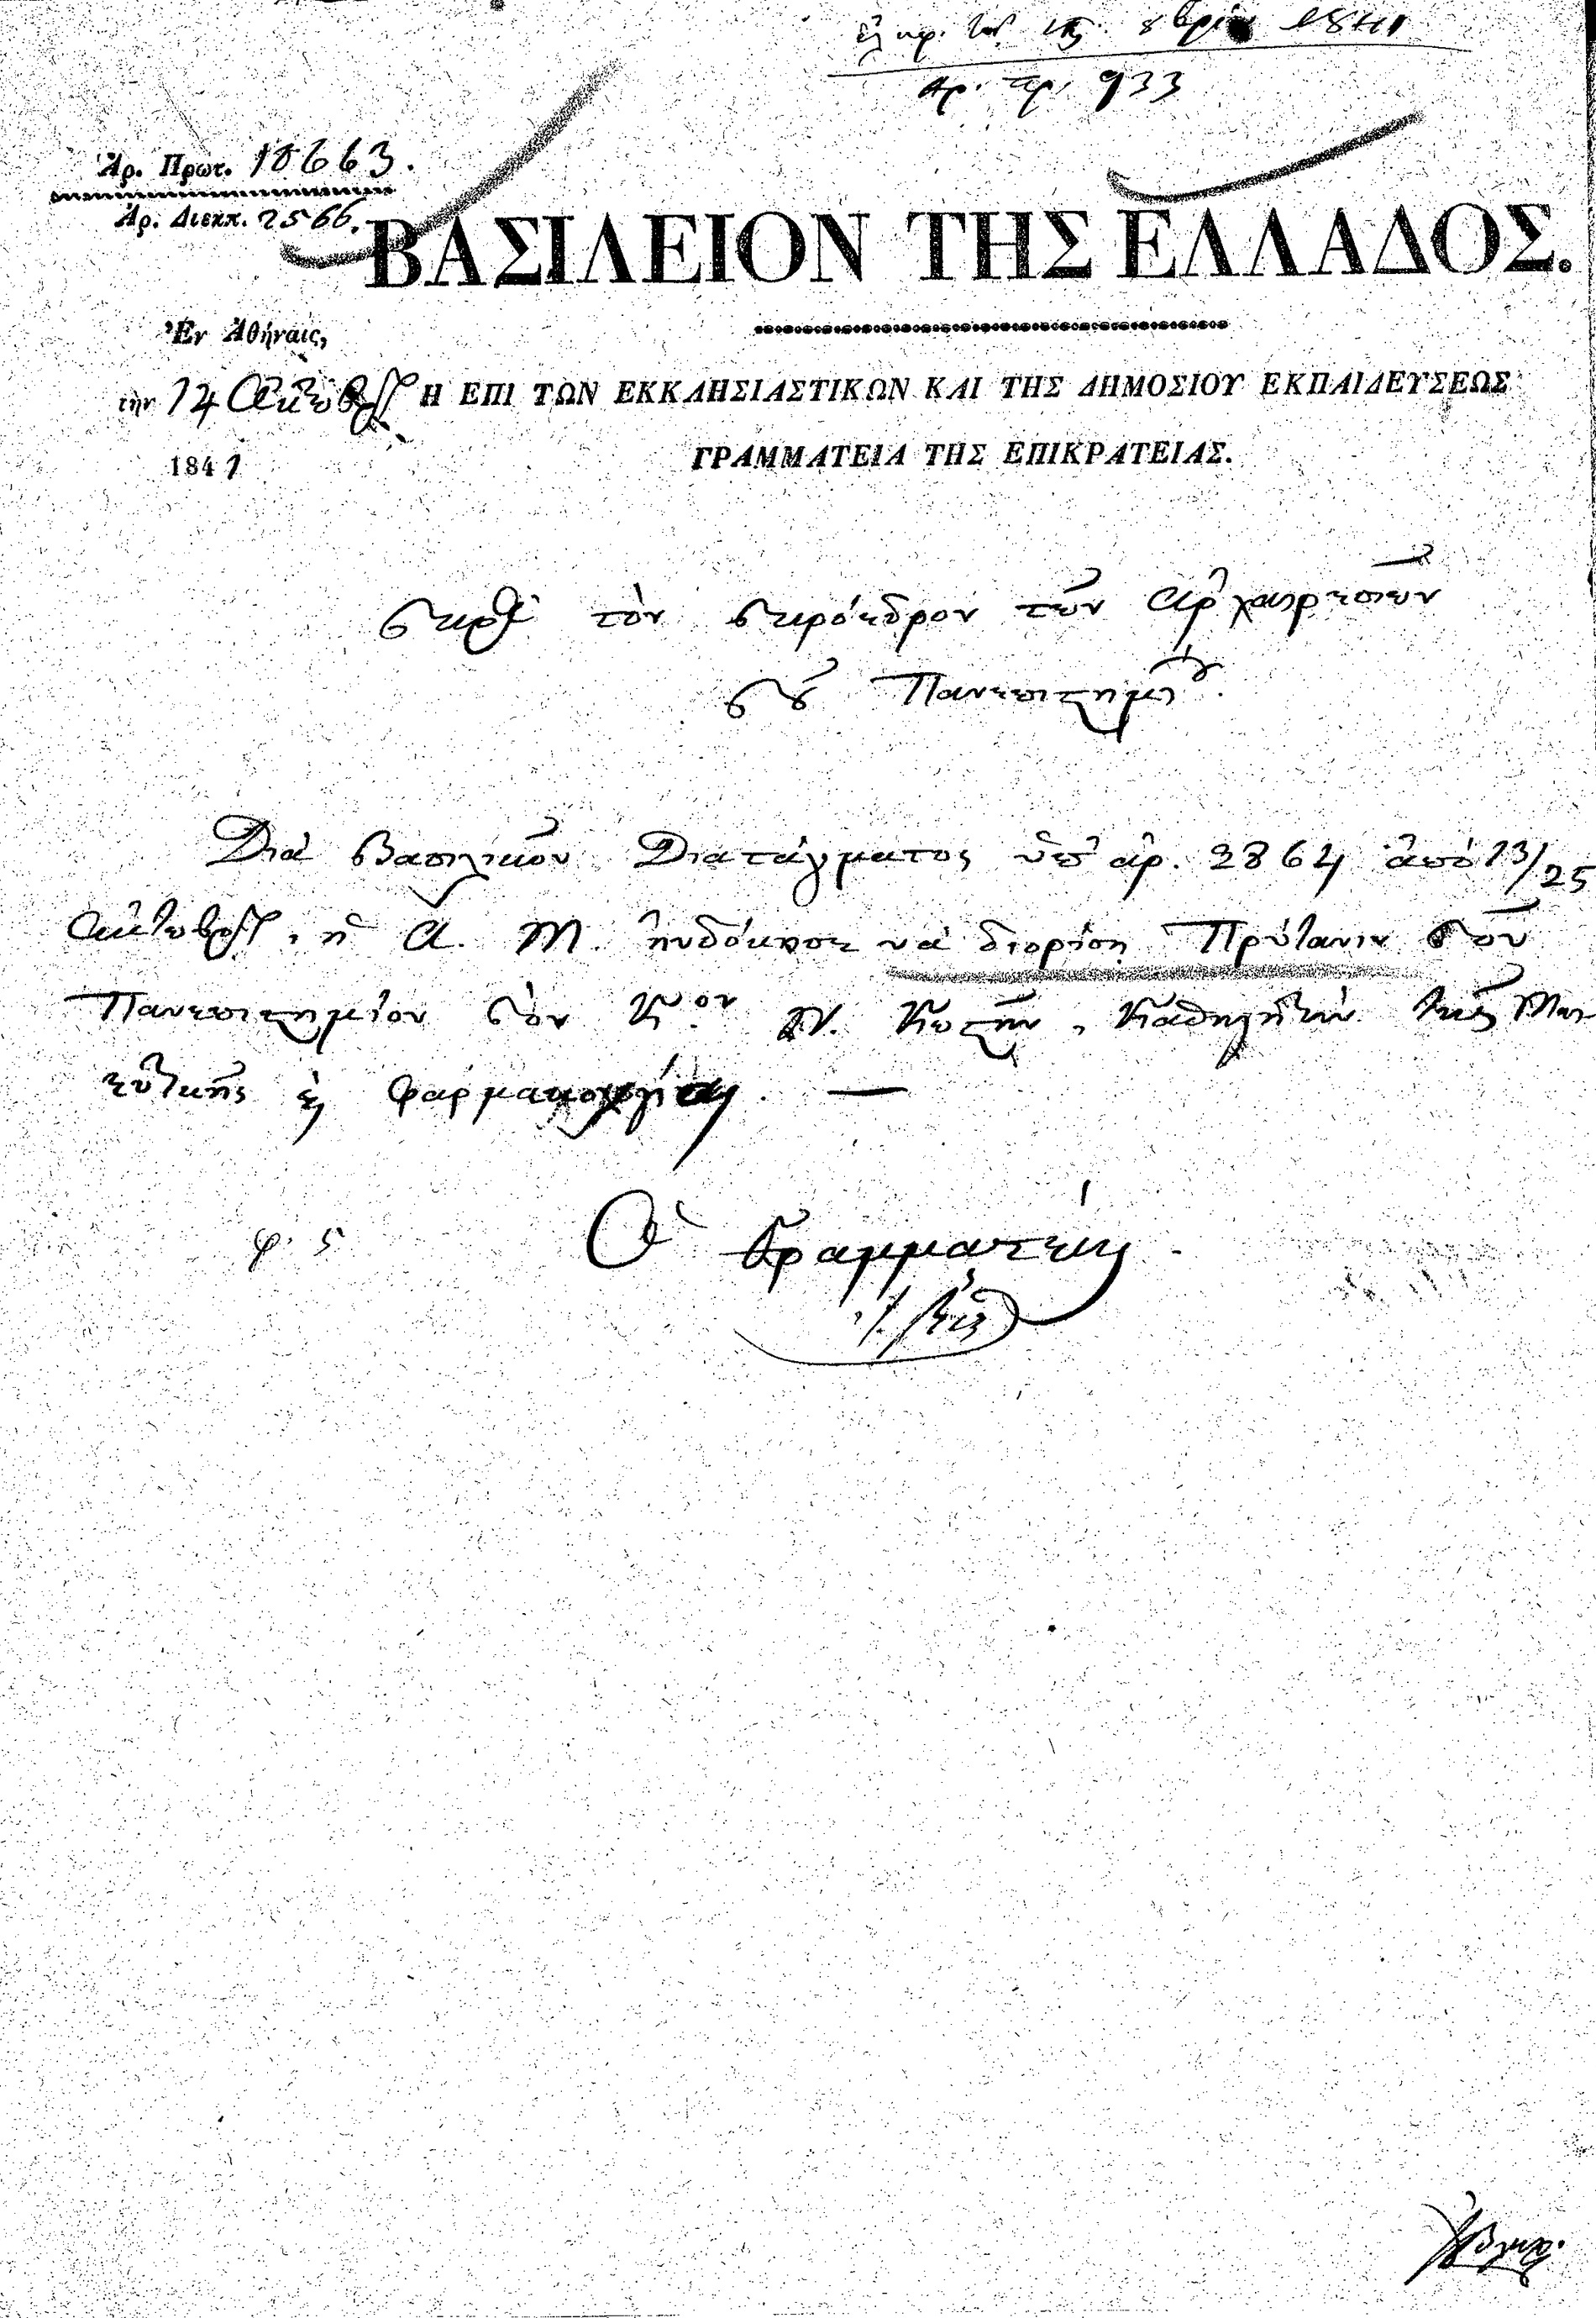 8βρίου 1841
Αρ. πρ. 933
Ἀρ. Πρωτ. 18663.
Ἀρ. Διεκπ. 2566.
ΒΑΣΙΛΕΙΟΝ ΤΗΣ ΕΛΛΑΔΟΣ.
Ἐν Ἀθήναις,
τὴν 14 Ὀκτωβρ
1841
Η ΕΠΙ ΤΩΝ ΕΚΚΛΗΣΙΑΣΤΙΚΩΝ ΚΑΙ ΤΗΣ ΔΗΜΟΣΙΟΥ ΕΚΠΑΙΔΕΥΣΕΩΣ
ΓΡΑΜΜΑΤΕΙΑ ΤΗΣ ΕΠΙΚΡΑΤΕΙΑΣ.
Πρὸς τὸν Πρόεδρον τῶν Ἀρχαιρεσιῶν
τοῦ Πανεπιστημίου.
Διὰ Βασιλικοῦ Διατάγματος ὑπ' ἀρ. 2864 ἀπὸ 13/25
Ὀκτωβρ, ἡ Α. Μ. ηὐδόκησε νὰ διορίσῃ Πρύτανιν τοῦ
Πανεπιστημίου τὸν Κ.ον Ν. Κωστῆν, Καθηγητὴν τῆς Μαι
ευτικῆς καὶ φαρμακολογίας. —
φ. 5
Ὁ Γραμματεύς.